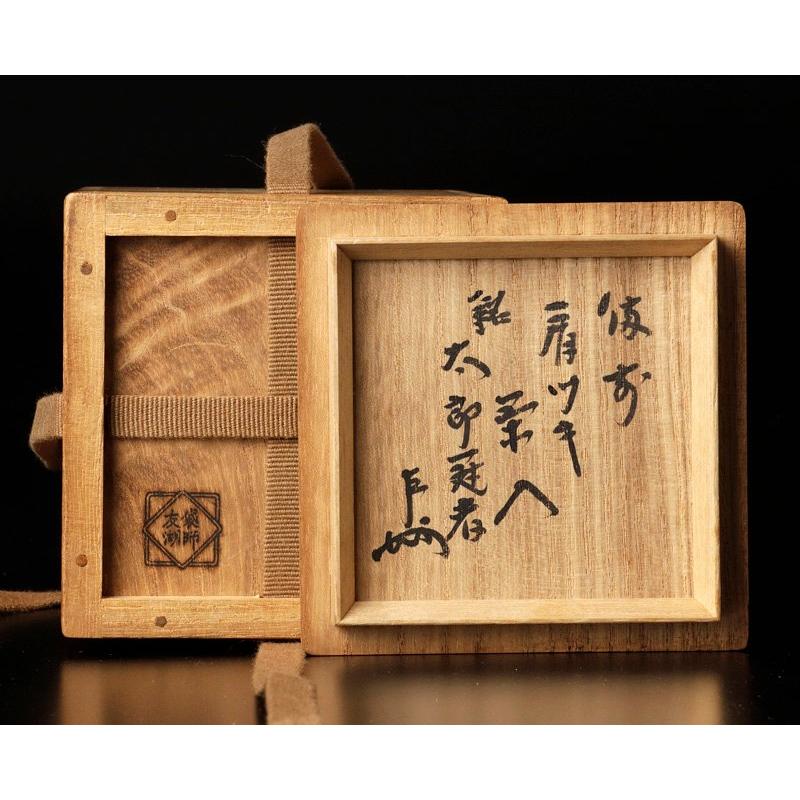 備前
肩ツキ
茶入
銘
太郎冠者
袋師
友湖